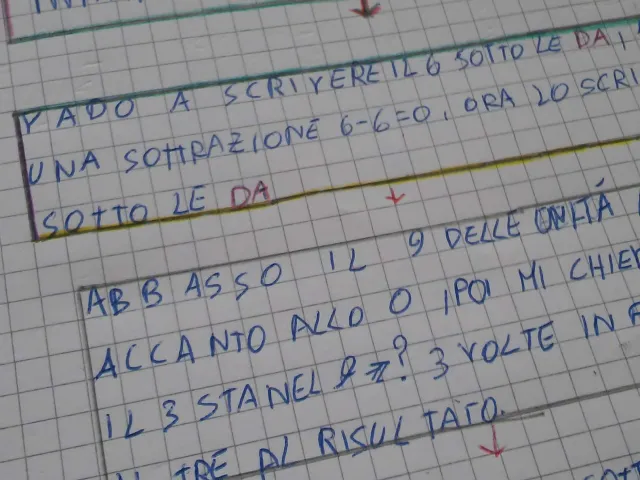 VADO A SCRIVERE IL 6 SOTTO LE DA,
UNA SOTTRAZIONE 6-6=0, ORA LO SCRI
SOTTO LE DA
ABBASSO IL 9 DELLE UNITÁ
ACCANTO ALLO 0 , POI MI CHIE
IL 3 STA NEL 9 ? 3 VOLTE IN
TRE AL RISULTATO.